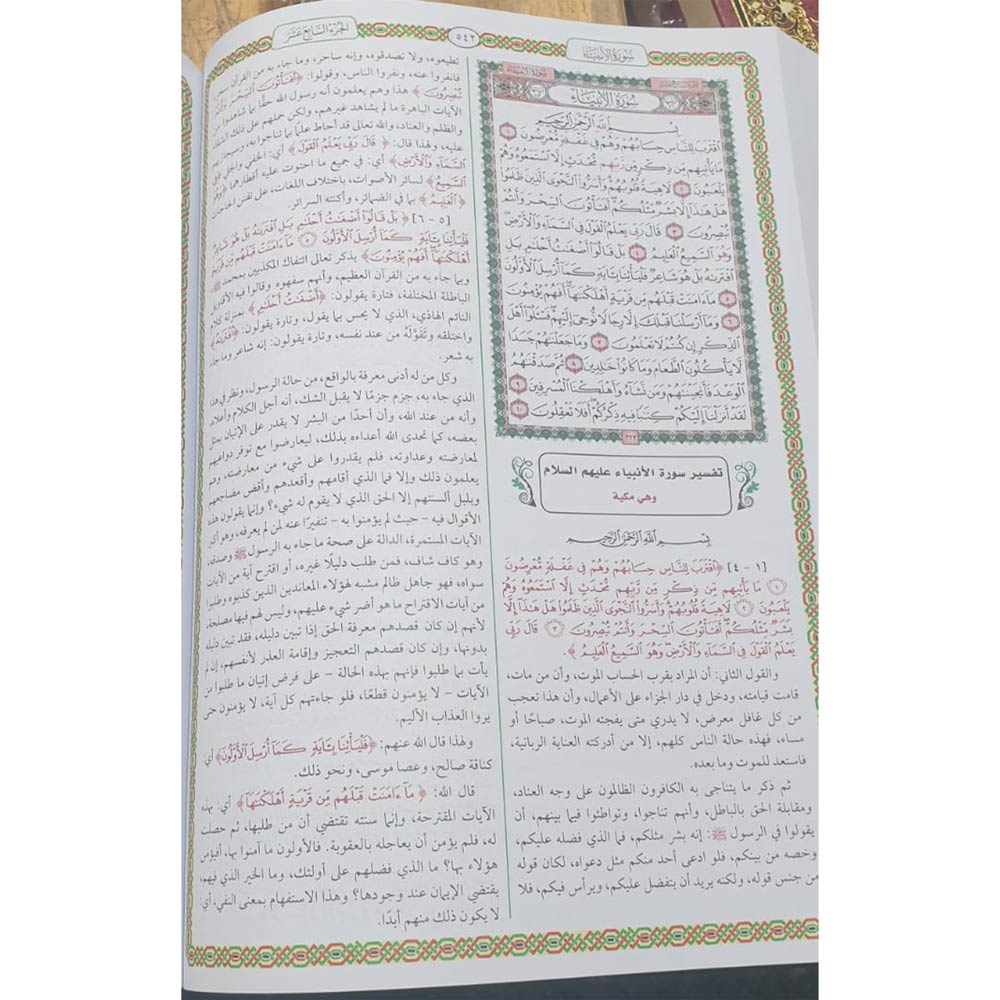 سورة الأنبياء
٥٤٢
الجزء السابع عشر
سورة الأنبياء
سورة الأنبياء
بسم الله الرحمن الرحيم
ٱقْتَرَبَ لِلنَّاسِ حِسَابُهُمْ وَهُمْ فِي غَفْلَةٍ مُّعْرِضُونَ ١
مَا يَأْتِيهِم مِّن ذِكْرٍ مِّن رَّبِّهِم مُّحْدَثٍ إِلَّا ٱسْتَمَعُوهُ وَهُمْ
يَلْعَبُونَ ٢ لَاهِيَةً قُلُوبُهُمْ وَأَسَرُّوا ٱلنَّجْوَى ٱلَّذِينَ ظَلَمُوا
هَلْ هَٰذَا إِلَّا بَشَرٌ مِّثْلُكُمْ أَفَتَأْتُونَ ٱلسِّحْرَ وَأَنتُمْ
تُبْصِرُونَ ٣ قَالَ رَبِّي يَعْلَمُ ٱلْقَوْلَ فِي ٱلسَّمَاءِ وَٱلْأَرْضِ
وَهُوَ ٱلسَّمِيعُ ٱلْعَلِيمُ ٤ بَلْ قَالُوا أَضْغَٰثُ أَحْلَٰمٍ بَلِ
ٱفْتَرَىٰهُ بَلْ هُوَ شَاعِرٌ فَلْيَأْتِنَا بِـَٔايَةٍ كَمَا أُرْسِلَ ٱلْأَوَّلُونَ
٥ مَا ءَامَنَتْ قَبْلَهُم مِّن قَرْيَةٍ أَهْلَكْنَٰهَا أَفَهُمْ يُؤْمِنُونَ
٦ وَمَا أَرْسَلْنَا قَبْلَكَ إِلَّا رِجَالًا نُّوحِي إِلَيْهِمْ فَسْـَٔلُوا أَهْلَ
ٱلذِّكْرِ إِن كُنتُمْ لَا تَعْلَمُونَ ٧ وَمَا جَعَلْنَٰهُمْ جَسَدًا
لَّا يَأْكُلُونَ ٱلطَّعَامَ وَمَا كَانُوا خَٰلِدِينَ ٨ ثُمَّ صَدَقْنَٰهُمُ
ٱلْوَعْدَ فَأَنجَيْنَٰهُمْ وَمَن نَّشَاءُ وَأَهْلَكْنَا ٱلْمُسْرِفِينَ ٩
لَقَدْ أَنزَلْنَا إِلَيْكُمْ كِتَٰبًا فِيهِ ذِكْرُكُمْ أَفَلَا تَعْقِلُونَ ١٠
٣٢٢
تفسير سورة الأنبياء عليهم السلام
وهي مكية
بسم الله الرحمن الرحيم
[١ - ٤] ﴿ٱقْتَرَبَ لِلنَّاسِ حِسَابُهُمْ وَهُمْ فِي غَفْلَةٍ مُّعْرِضُونَ
١ مَا يَأْتِيهِم مِّن ذِكْرٍ مِّن رَّبِّهِم مُّحْدَثٍ إِلَّا ٱسْتَمَعُوهُ وَهُمْ
يَلْعَبُونَ ٢ لَاهِيَةً قُلُوبُهُمْ وَأَسَرُّوا ٱلنَّجْوَى ٱلَّذِينَ ظَلَمُوا هَلْ هَٰذَا إِلَّا
بَشَرٌ مِّثْلُكُمْ أَفَتَأْتُونَ ٱلسِّحْرَ وَأَنتُمْ تُبْصِرُونَ ٣ قَالَ رَبِّي
يَعْلَمُ ٱلْقَوْلَ فِي ٱلسَّمَاءِ وَٱلْأَرْضِ وَهُوَ ٱلسَّمِيعُ ٱلْعَلِيمُ﴾.
والقول الثاني: أن المراد بقرب الحساب الموت، وأن من مات،
قامت قيامته، ودخل في دار الجزاء على الأعمال، وأن هذا تعجب
من كل غافل معرض، لا يدري متى يفجئه الموت، صباحًا أو
مساء، فهذه حالة الناس كلهم، إلا من أدركته العناية الربانية،
فاستعد للموت وما بعده.
ثم ذكر ما يتناجى به الكافرون الظالمون على وجه العناد،
ومقابلة الحق بالباطل، وأنهم تناجوا، وتواطئوا فيما بينهم، أن
يقولوا في الرسول ﷺ: إنه بشر مثلكم، فما الذي فضله عليكم،
وخصه من بينكم، فلو ادعى أحد منكم مثل دعواه، لكان قوله
من جنس قوله، ولكنه يريد أن يتفضل عليكم، ويرأس فيكم، فلا
تطيعوه، ولا تصدقوه، وإنه ساحر، وما جاء به من القرآن سحر
فانفروا عنه، ونفروا الناس، وقولوا: ﴿أَفَتَأْتُونَ ٱلسِّحْرَ وَأَنتُمْ
تُبْصِرُونَ﴾ هذا وهم يعلمون أنه رسول الله حقًا بما شاهدوا من
الآيات الباهرة ما لم يشاهد غيرهم، ولكن حملهم على ذلك الشقاء
والظلم والعناد، والله تعالى قد أحاط علمًا بما تناجوا به، وسيجازيهم
عليه، ولهذا قال: ﴿قَالَ رَبِّي يَعْلَمُ ٱلْقَوْلَ﴾ أي: الخفي والجلي ﴿فِي
ٱلسَّمَاءِ وَٱلْأَرْضِ﴾ أي: في جميع ما احتوت عليه أقطارهما ﴿وَهُوَ
ٱلسَّمِيعُ﴾ لسائر الأصوات، باختلاف اللغات، على تفنن الحاجات
﴿ٱلْعَلِيمُ﴾ بما في الضمائر، وأكنته السرائر.
[٥ - ٦] ﴿بَلْ قَالُوا أَضْغَٰثُ أَحْلَٰمٍ بَلِ ٱفْتَرَىٰهُ بَلْ هُوَ شَاعِرٌ
فَلْيَأْتِنَا بِـَٔايَةٍ كَمَا أُرْسِلَ ٱلْأَوَّلُونَ ٥ مَا ءَامَنَتْ قَبْلَهُم مِّن قَرْيَةٍ
أَهْلَكْنَٰهَا أَفَهُمْ يُؤْمِنُونَ﴾ يذكر تعالى ائتفاك المكذبين بمحمد ﷺ
وبما جاء به من القرآن العظيم، وأنهم سفهوه وقالوا فيه الأقاويل
الباطلة المختلفة، فتارة يقولون: ﴿أَضْغَٰثُ أَحْلَٰمٍ﴾ بمنزلة كلام
النائم الهاذي، الذي لا يحس بما يقول، وتارة يقولون: ﴿ٱفْتَرَىٰهُ﴾
واختلقه وتَقَوَّلَهُ من عند نفسه، وتارة يقولون: إنه شاعر وما جاء
به شعر.
وكل من له أدنى معرفة بالواقع، من حالة الرسول، ونظر في هذا
الذي جاء به، جزم جزمًا لا يقبل الشك، أنه أجل الكلام وأعلاه،
وأنه من عند الله، وأن أحدًا من البشر لا يقدر على الإتيان بمثل
بعضه، كما تحدى الله أعداءه بذلك، ليعارضوا مع توفر دواعيهم
لمعارضته وعداوته، فلم يقدروا على شيء من معارضته، وهم
يعلمون ذلك وإلا فما الذي أقامهم وأقعدهم وأقض مضاجعهم
وبلبل ألسنتهم إلا الحق الذي لا يقوم له شيء؟ وإنما يقولون هذه
الأقوال فيه – حيث لم يؤمنوا به – تنفيرًا عنه لمن لم يعرفه، وهو أكبر
الآيات المستمرة، الدالة على صحة ما جاء به الرسول ﷺ وصدقه،
وهو كاف شاف، فمن طلب دليلًا غيره، أو اقترح آية من الآيات
سواه، فهو جاهل ظالم مشبه لهؤلاء المعاندين الذين كذبوه وطلبوا
من آيات الاقتراح ما هو أضر شيء عليهم، وليس لهم فيها مصلحة،
لأنهم إن كان قصدهم معرفة الحق إذا تبين دليله، فقد تبين دليله
بدونها، وإن كان قصدهم التعجيز وإقامة العذر لأنفسهم، إن لم
يأت بما طلبوا فإنهم بهذه الحالة – على فرض إتيان ما طلبوا من
الآيات – لا يؤمنون قطعًا، فلو جاءتهم كل آية، لا يؤمنون حتى
يروا العذاب الأليم.
ولهذا قال الله عنهم: ﴿فَلْيَأْتِنَا بِـَٔايَةٍ كَمَا أُرْسِلَ ٱلْأَوَّلُونَ﴾ أي:
كناقة صالح، وعصا موسى، ونحو ذلك.
قال الله: ﴿مَا ءَامَنَتْ قَبْلَهُم مِّن قَرْيَةٍ أَهْلَكْنَٰهَا﴾ أي: بهذه
الآيات المقترحة، وإنما سنته تقتضي أن من طلبها، ثم حصلت
له، فلم يؤمن أن يعاجله بالعقوبة. فالأولون ما آمنوا بها، أفيؤمن
هؤلاء بها؟ ما الذي فضلهم على أولئك، وما الخير الذي فيهم،
يقتضي الإيمان عند وجودها؟ وهذا الاستفهام بمعنى النفي، أي:
لا يكون ذلك منهم أبدًا.